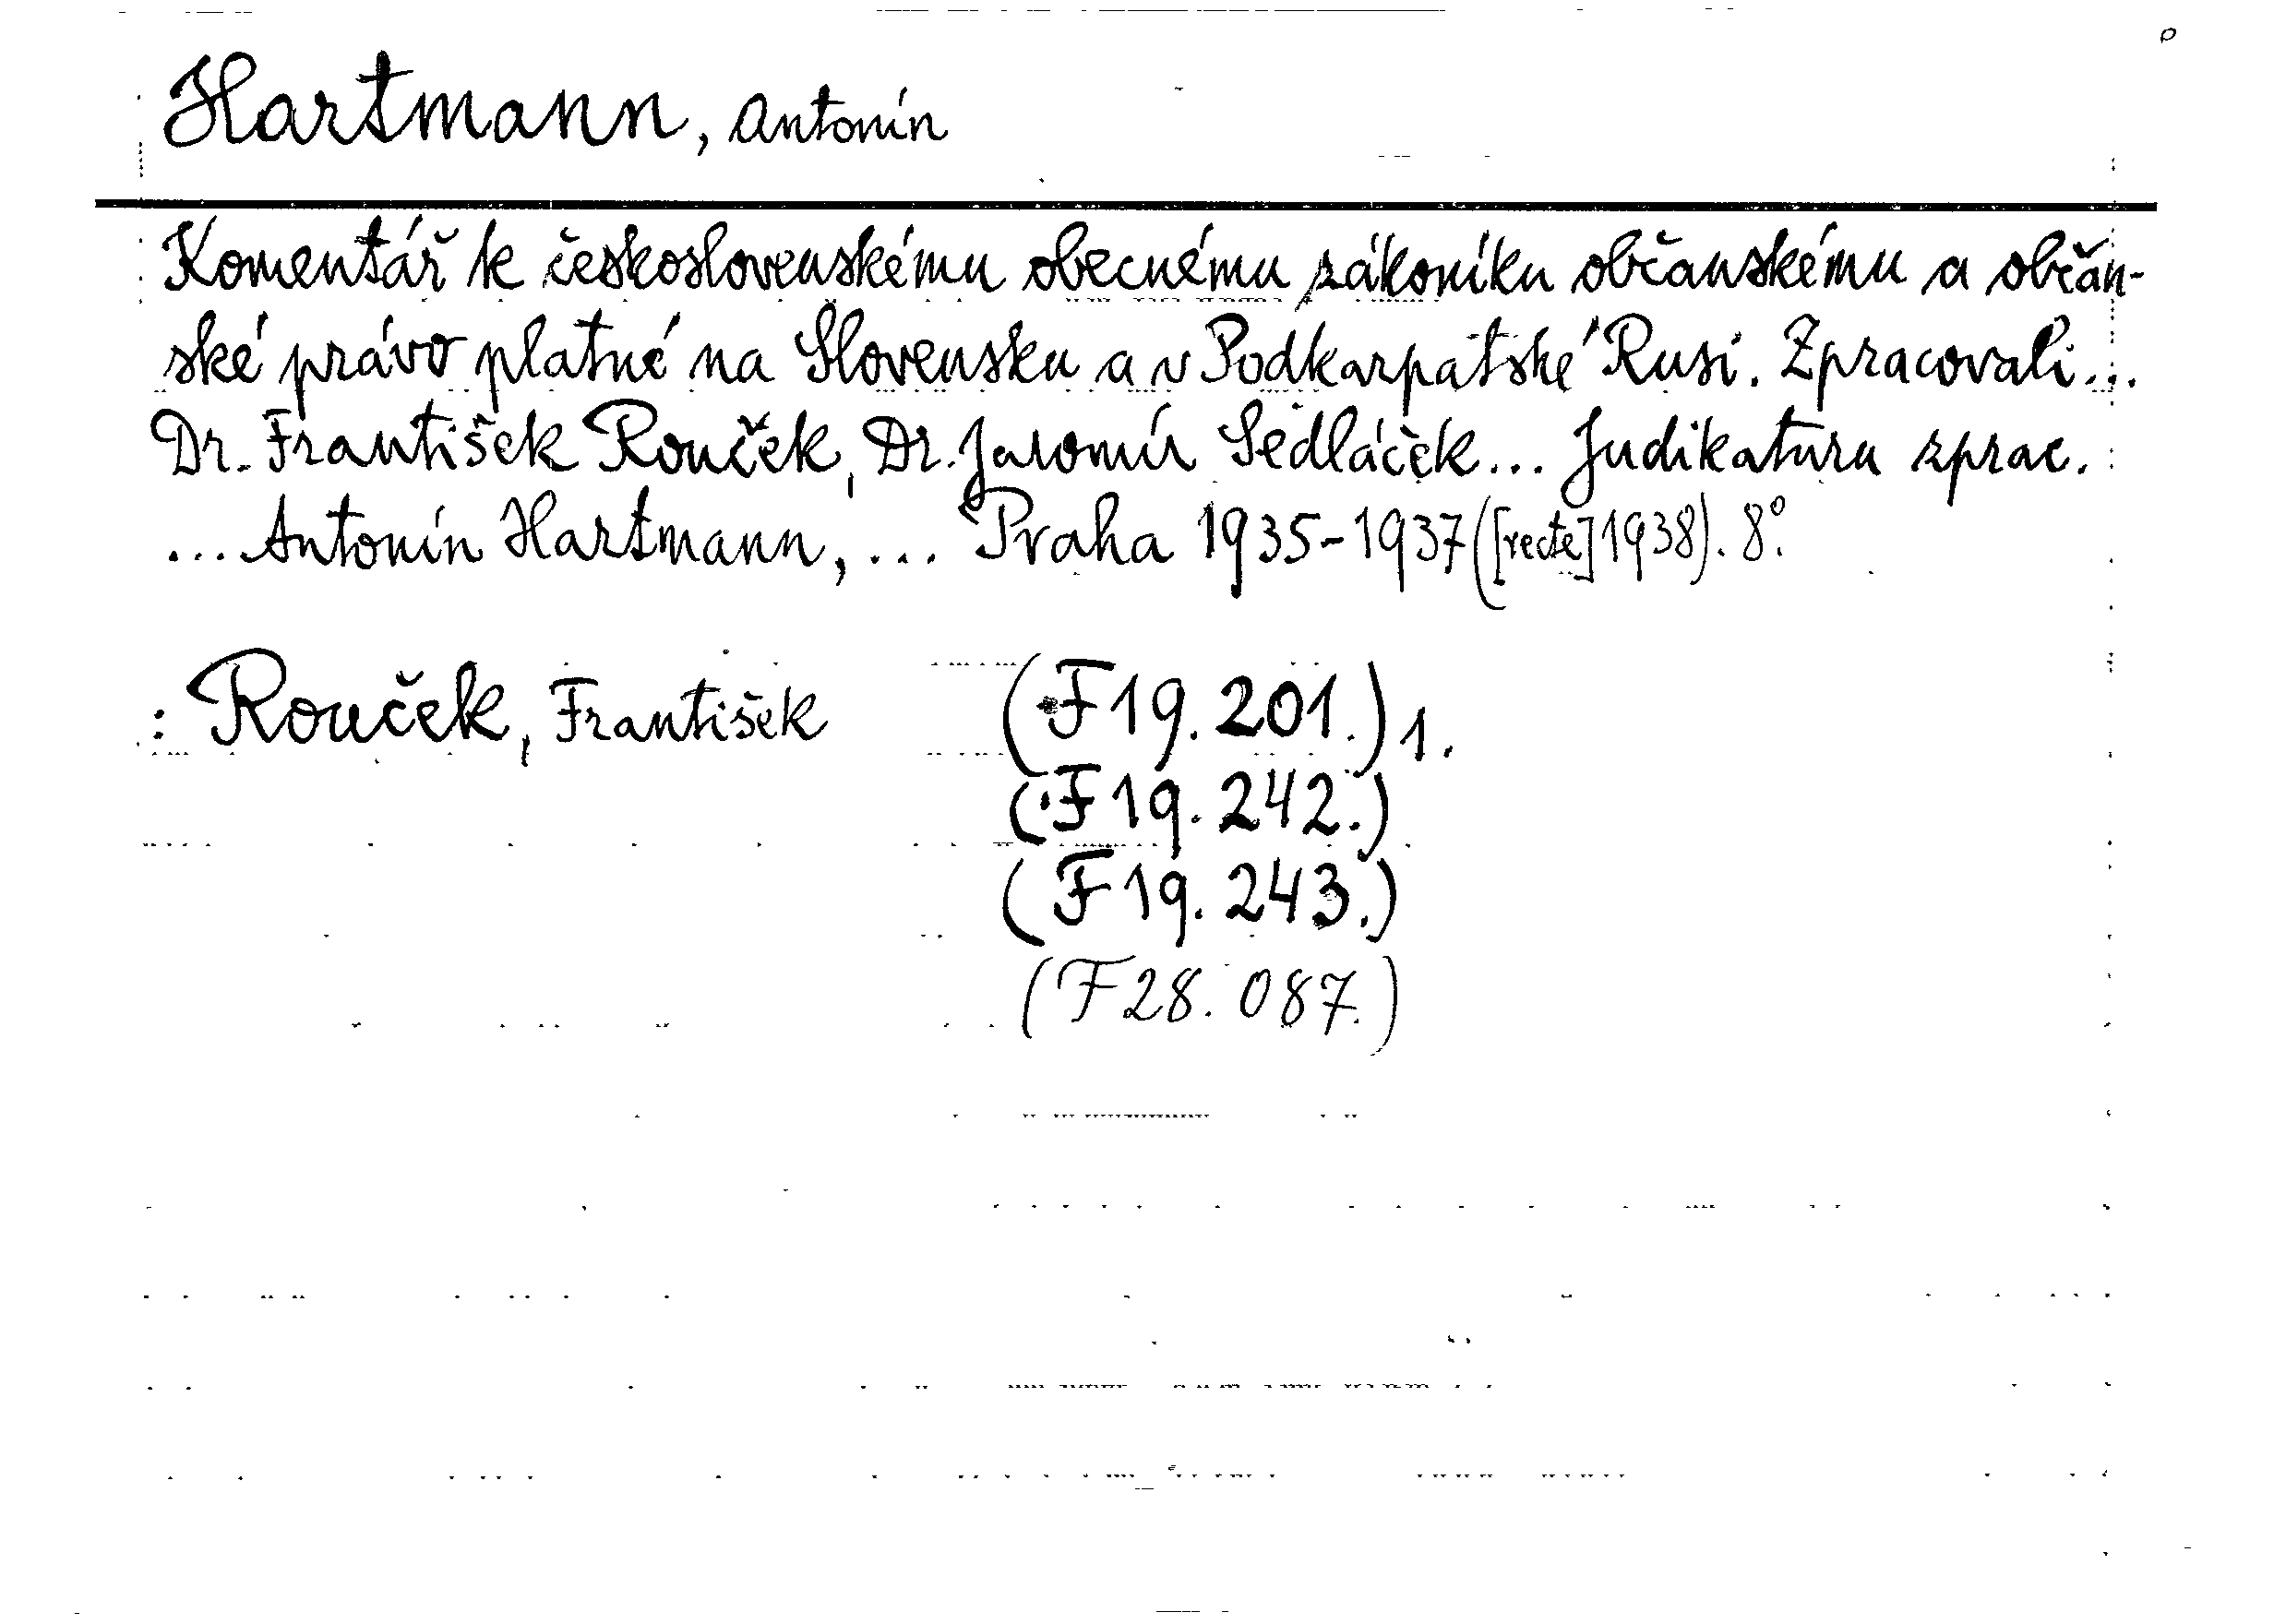 Hartmann, Antonín
Komentář k československému obecnému zákoníku občanskému a občan-
ské právo platné na Slovensku a v Podkarpatské Rusi. Zpracovali...
Dr. František Rouček, Dr. Jaromír Sedláček... Judikaturu zprac.
... Antonín Hartmann, ... Praha 1935-1937([recte]1938). 8°.
: Rouček, František (F19.201.) 1.
(F19.242.)
(F19.243.)
(F28.087.)